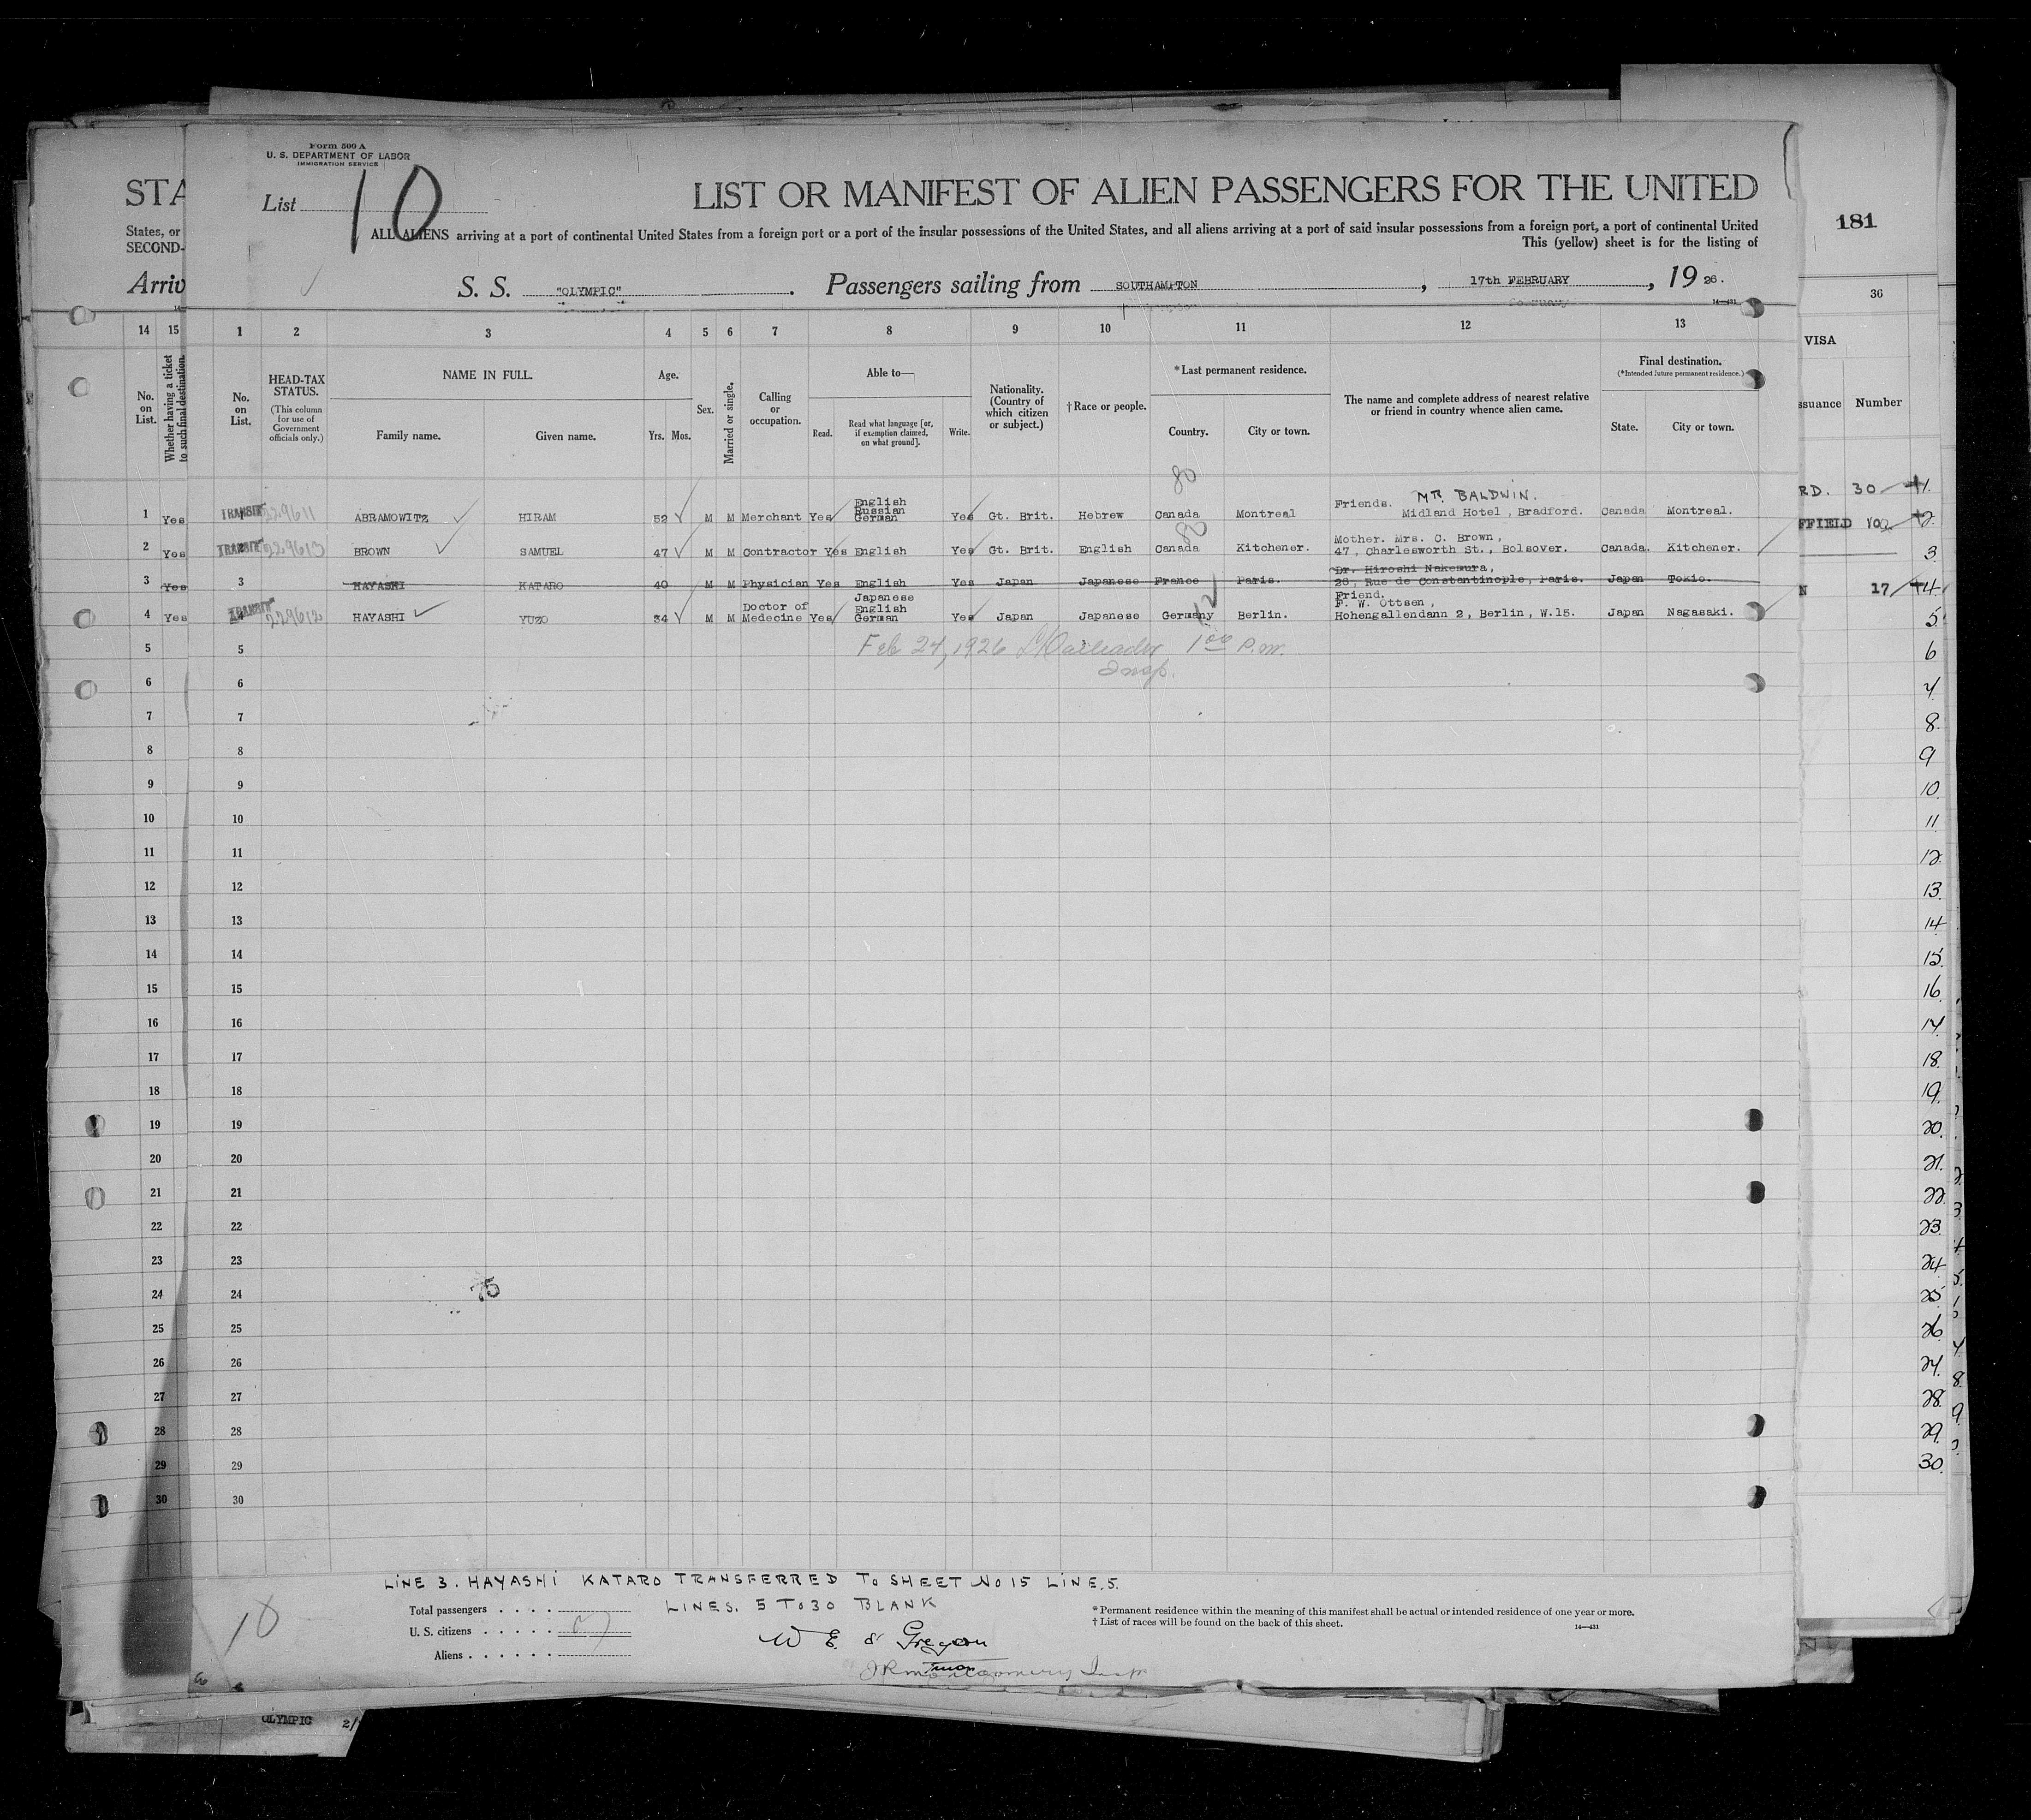 Form 500 A
U. S. DEPARTMENT OF LABOR
IMMIGRATION SERVICE
List 10
LIST OR MANIFEST OF ALIEN PASSENGERS FOR THE UNITED
ALL ALIENS arriving at a port of continental United States from a foreign port or a port of the insular possessions of the United States, and all aliens arriving at a port of said insular possessions from a foreign port, a port of continental United
This (yellow) sheet is for the listing of
S. S. "OLYMPIC". Passengers sailing from SOUTHAMPTON, 17th FEBRUARY, 19 26.
14—431
STA
States, or
SECOND-
Arriv
181
36
VISA
ssuance Number
14 15 1 2 3 4 5 6 7 8 9 10 11 12 13
No. on List.
Whether having a ticket to such final destination.
No. on List.
HEAD-TAX STATUS.
(This column for use of Government officials only.)
NAME IN FULL.
Family name. Given name.
Age.
Yrs. Mos.
Sex.
Married or single.
Calling or occupation.
Able to—
Read. Read what language [or, if exemption claimed, on what ground]. Write.
Nationality. (Country of which citizen or subject.)
†Race or people.
*Last permanent residence.
Country. City or town.
The name and complete address of nearest relative or friend in country whence alien came.
Final destination.
(*Intended future permanent residence.)
State. City or town.
80
1 Yes TRANSIT 229611 ABRAMOWITZ HIRAM 52 M M Merchant Yes English Russian German Yes Gt. Brit. Hebrew Canada Montreal Friends. MR. BALDWIN. Midland Hotel, Bradford. Canada Montreal. RD. 30 1.
80
2 Yes TRANSIT 229613 BROWN SAMUEL 47 M M Contractor Yes English Yes Gt. Brit. English Canada Kitchener. Mother. Mrs. C. Brown, 47, Charlesworth St., Bolsover. Canada. Kitchener. FFIELD 102 2.
3 Yes 3 HAYASHI KATARO 40 M M Physician Yes English Yes Japan Japanese France Paris. Dr. Hiroshi Nakemura, 28, Rue de Constantinople, Paris. Japan Tokio. 3
12
4 Yes TRANSIT 229612 HAYASHI YUZO 34 M M Doctor of Medecine Yes Japanese English German Yes Japan Japanese Germany Berlin. Friend. F. W. Ottsen, Hohengallendann 2, Berlin, W.15. Japan Nagasaki. N 17 4
5 5 Feb 24, 1926 1 00 P.M. 5
Insp.
6 6 6
7 7 7
8 8 8
9 9 9
10 10 10
11 11 11
12 12 12
13 13 13
14 14 14
15 15 15
16 16 16
17 17 17
18 18 18
19 19 19
20 20 20
21 21 21
22 22 22
23 23 23
24 24 24
75
25 25 25
26 26 26
27 27 27
28 28 28
29 29 29
30 30 30
LINE 3. HAYASHI KATARO TRANSFERRED TO SHEET NO 15 LINE. 5.
LINES. 5 TO 30 BLANK
10
Total passengers
U. S. citizens
Aliens
W E & Gregson
JR Montgomery Insp
* Permanent residence within the meaning of this manifest shall be actual or intended residence of one year or more.
† List of races will be found on the back of this sheet.
14—431
OLYMPIC 2/